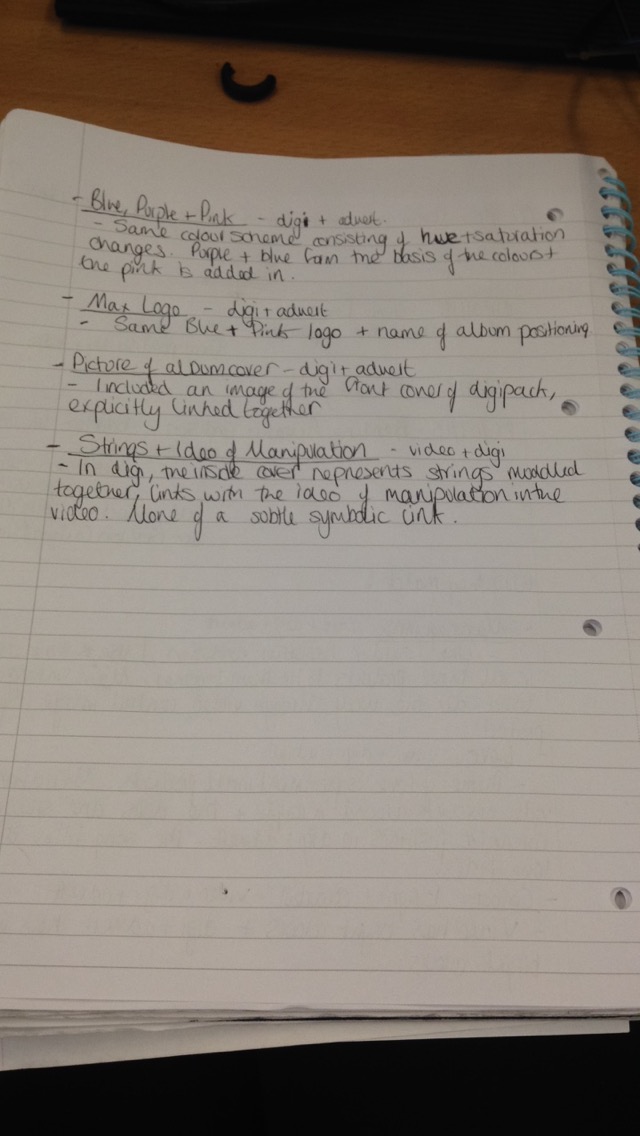 - Blue, Purple + Pink - digi + advert.
- Same colour scheme consisting of hue + saturation
changes. Purple + blue form the basis of the colours +
the pink is added in.
- Max Logo - digi + advert
- Same Blue + Pink logo + name of album positioning
- Picture of album cover - digi + advert
- Included an image of the front cover of digipack,
explicitly linked together
- Strings + Idea of Manipulation - video + digi
- In digi, the inside cover represents strings muddled
together, links with the idea of manipulation in the
video. More of a subtle symbolic link.